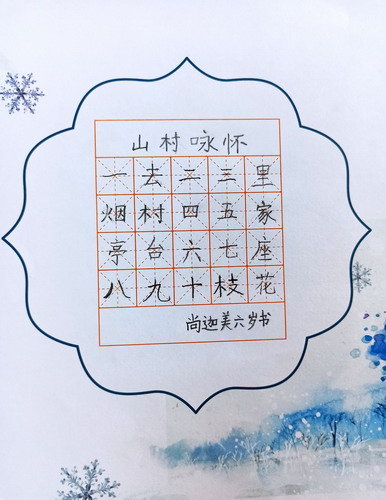 山村咏怀
一去二三里
烟村四五家
亭台六七座
八九十枝花
尚迦美六岁书